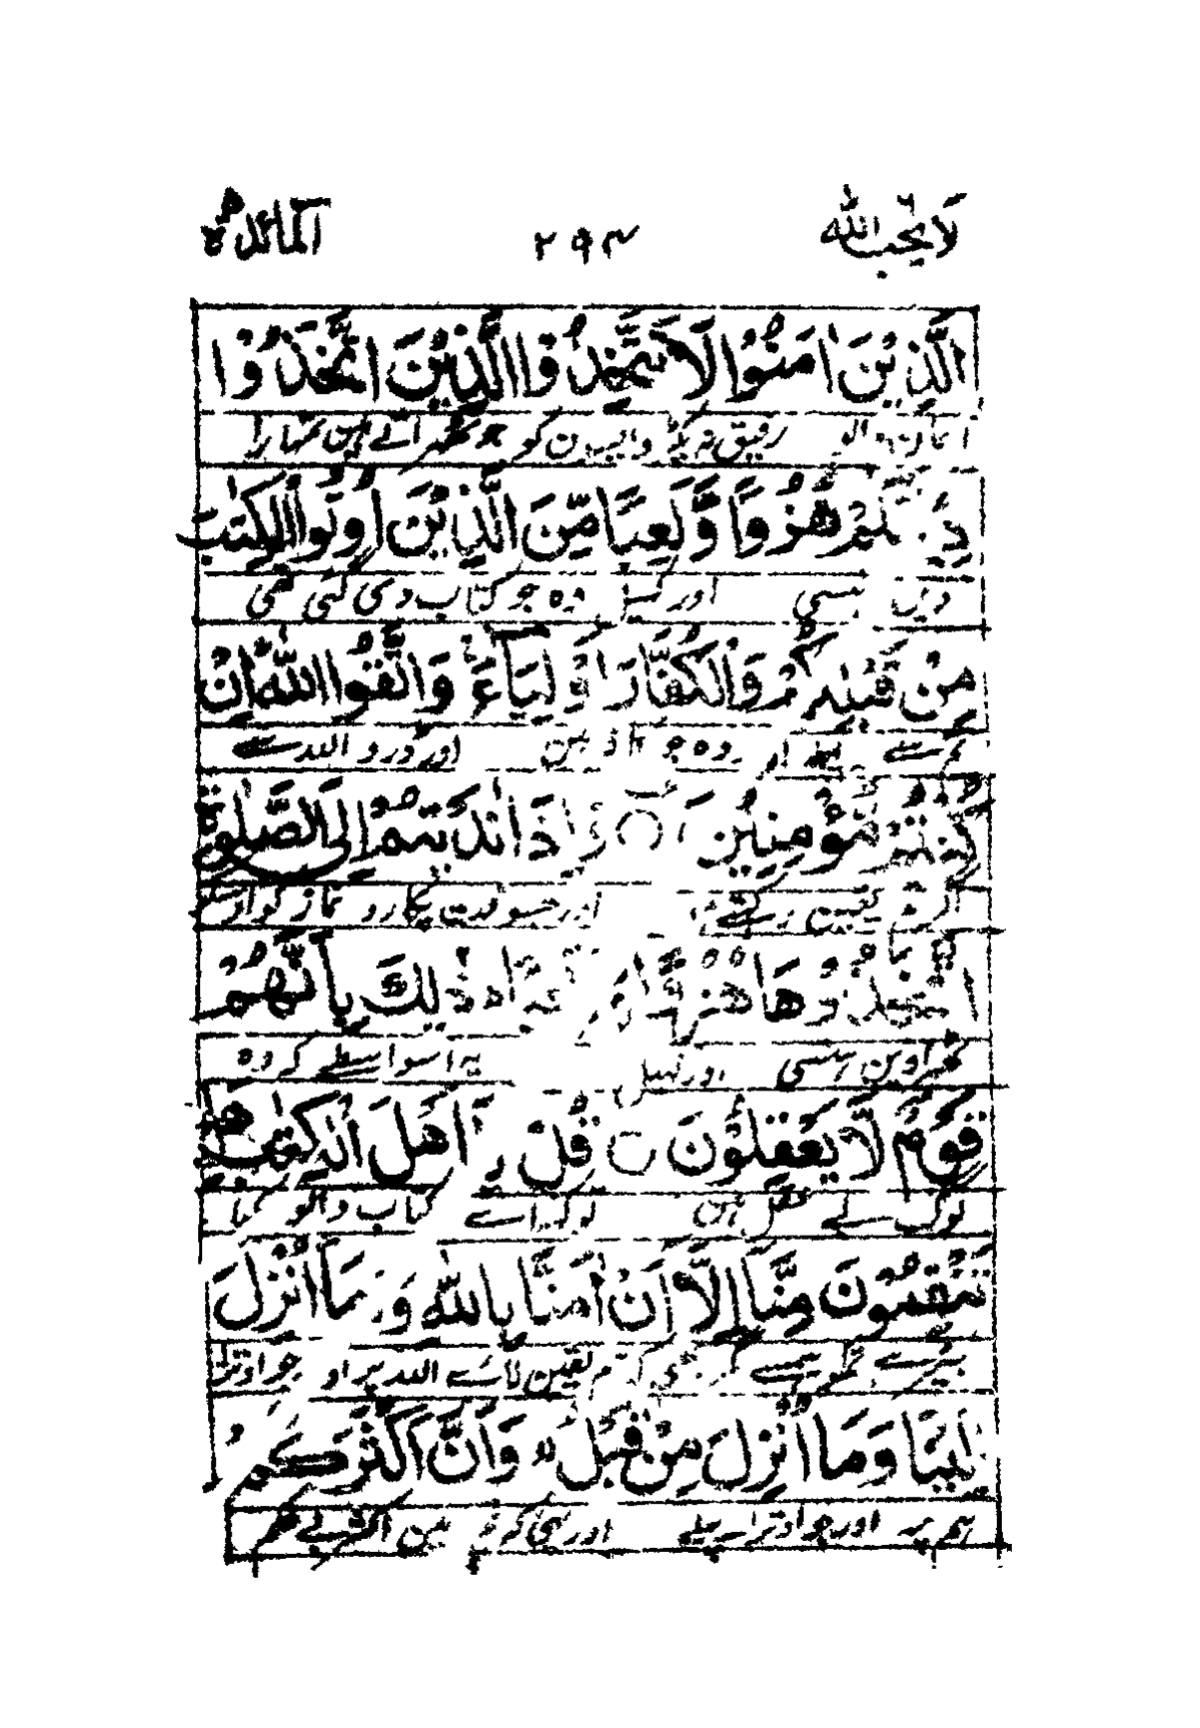 لا يحب الله ٦ ٢٩٤ المائدة ٥
الَّذِيْنَ اٰمَنُوْا لَا تَتَّخِذُوا الَّذِيْنَ اتَّخَذُوْا
رفیق نہ پکڑو اونہون کو جو ٹھہراتے ہین تمہارا
دِيْنَكُمْ هُزُوًا وَّلَعِبًا مِّنَ الَّذِيْنَ اُوْتُوا الْكِتٰبَ
دین ہنسی اور کھیل وہ جو کتاب دی گئی تھی
مِنْ قَبْلِكُمْ وَالْكُفَّارَ اَوْلِيَآءَ وَاتَّقُوا اللّٰهَ اِنْ
تم سے پہلے اور وہ جو ہین اور ڈرو اللہ سے
كُنْتُمْ مُّؤْمِنِيْنَ ○ وَاِذَا نَادَيْتُمْ اِلَى الصَّلٰوةِ
اگر تم یقین رکھتے اور جسوقت پکارو نماز کو
اتَّخَذُوْهَا هُزُوًا وَّلَعِبًا ذٰلِكَ بِاَنَّهُمْ
ٹھہراوین ہنسی اور کھیل یہ اسواسطے کہ وہ
قَوْمٌ لَّا يَعْقِلُوْنَ ○ قُلْ يٰٓاَهْلَ الْكِتٰبِ هَلْ
لوگ بے عقل ہین تو کہہ اے کتاب والو کیا
تَنْقِمُوْنَ مِنَّآ اِلَّآ اَنْ اٰمَنَّا بِاللّٰهِ وَمَآ اُنْزِلَ
بیر ہے تمکو ہمسے مگر یہی کہ ہم یقین لائے اللہ پر اور جو اوترا
اِلَيْنَا وَمَآ اُنْزِلَ مِنْ قَبْلُ وَاَنَّ اَكْثَرَكُمْ
ہم پر اور جو اوترا پہلے اور یہی کہ تم مین اکثر بے حکم